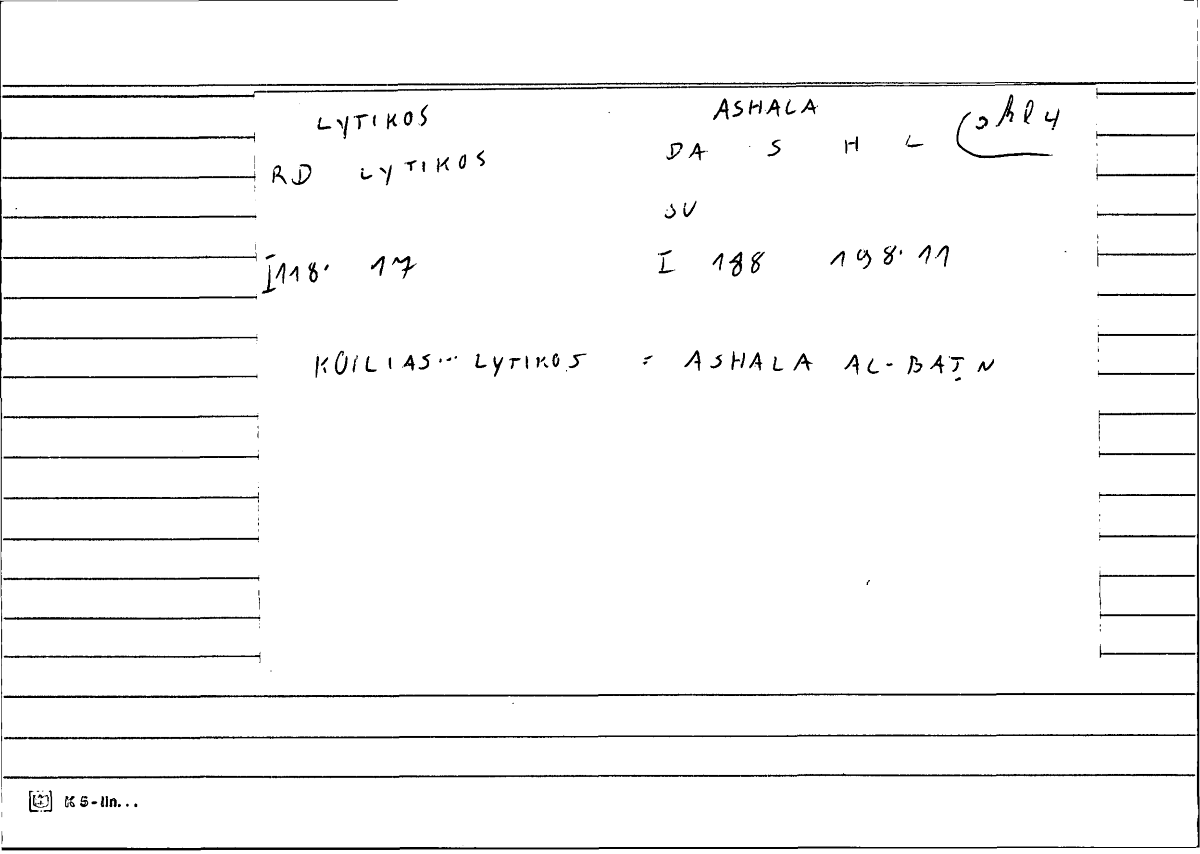 LYTIKOS ASHALA
RD LYTIKOS DA S H L
SV
I 118. 17 I 188 198. 11
KOILIAS... LYTIKOS = ASHALA AL-BAṬN
K5-lin...